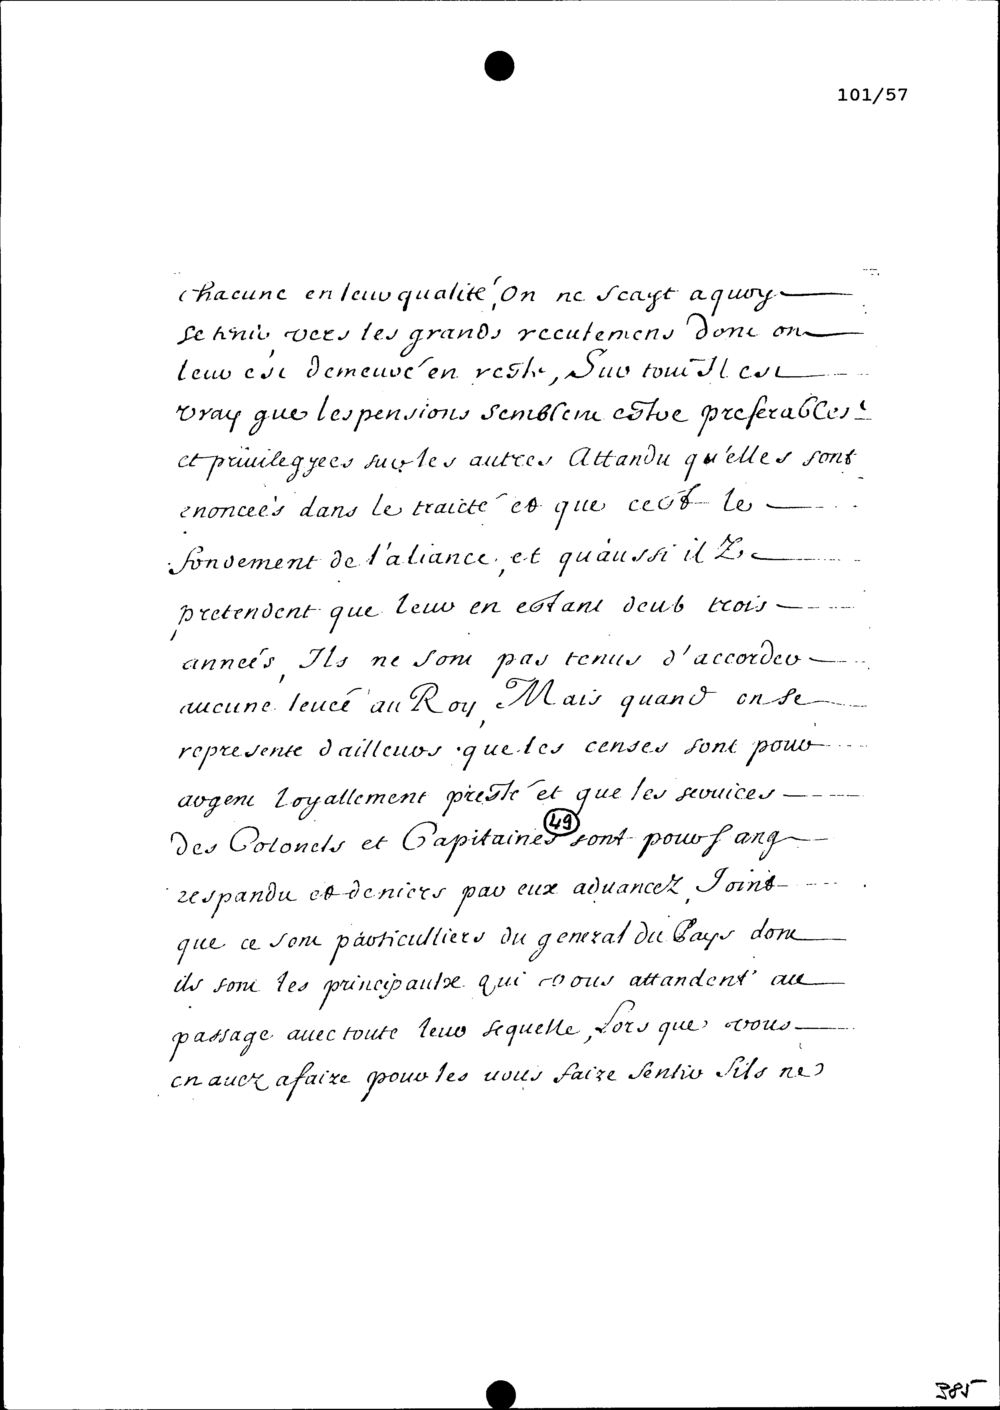 101/57
chacune en leur qualité, On ne scayt a quoy
se tenir vers les grands reculemens dont on
leur est demeuré en reste, Sur tout Il est
vray que les pensions semblent estre preferables
et priuilegyees sur les autres Attandu qu'elles sont
enonceés dans le traicté et que cest le
fondement de l'aliance, et qu'aussi ilz
pretendent que leur en estant deub trois
anneés, Ils ne sont pas tenus d'accorder
aucune leueé au Roy, Mais quand on se
represente d'ailleurs que les censes sont pour
argent Loyallement presté et que les seruices
des Colonels et Capitaines sont pour sang
49
respandu et deniers par eux aduancez, Joint
que ce sont particulliers du general du Pays dont
ils sont les principaulx qui vous attandent au
passage auec toute leur sequelle, Lors que vous
en auez afaire pour les vous faire sentir sils ne
385